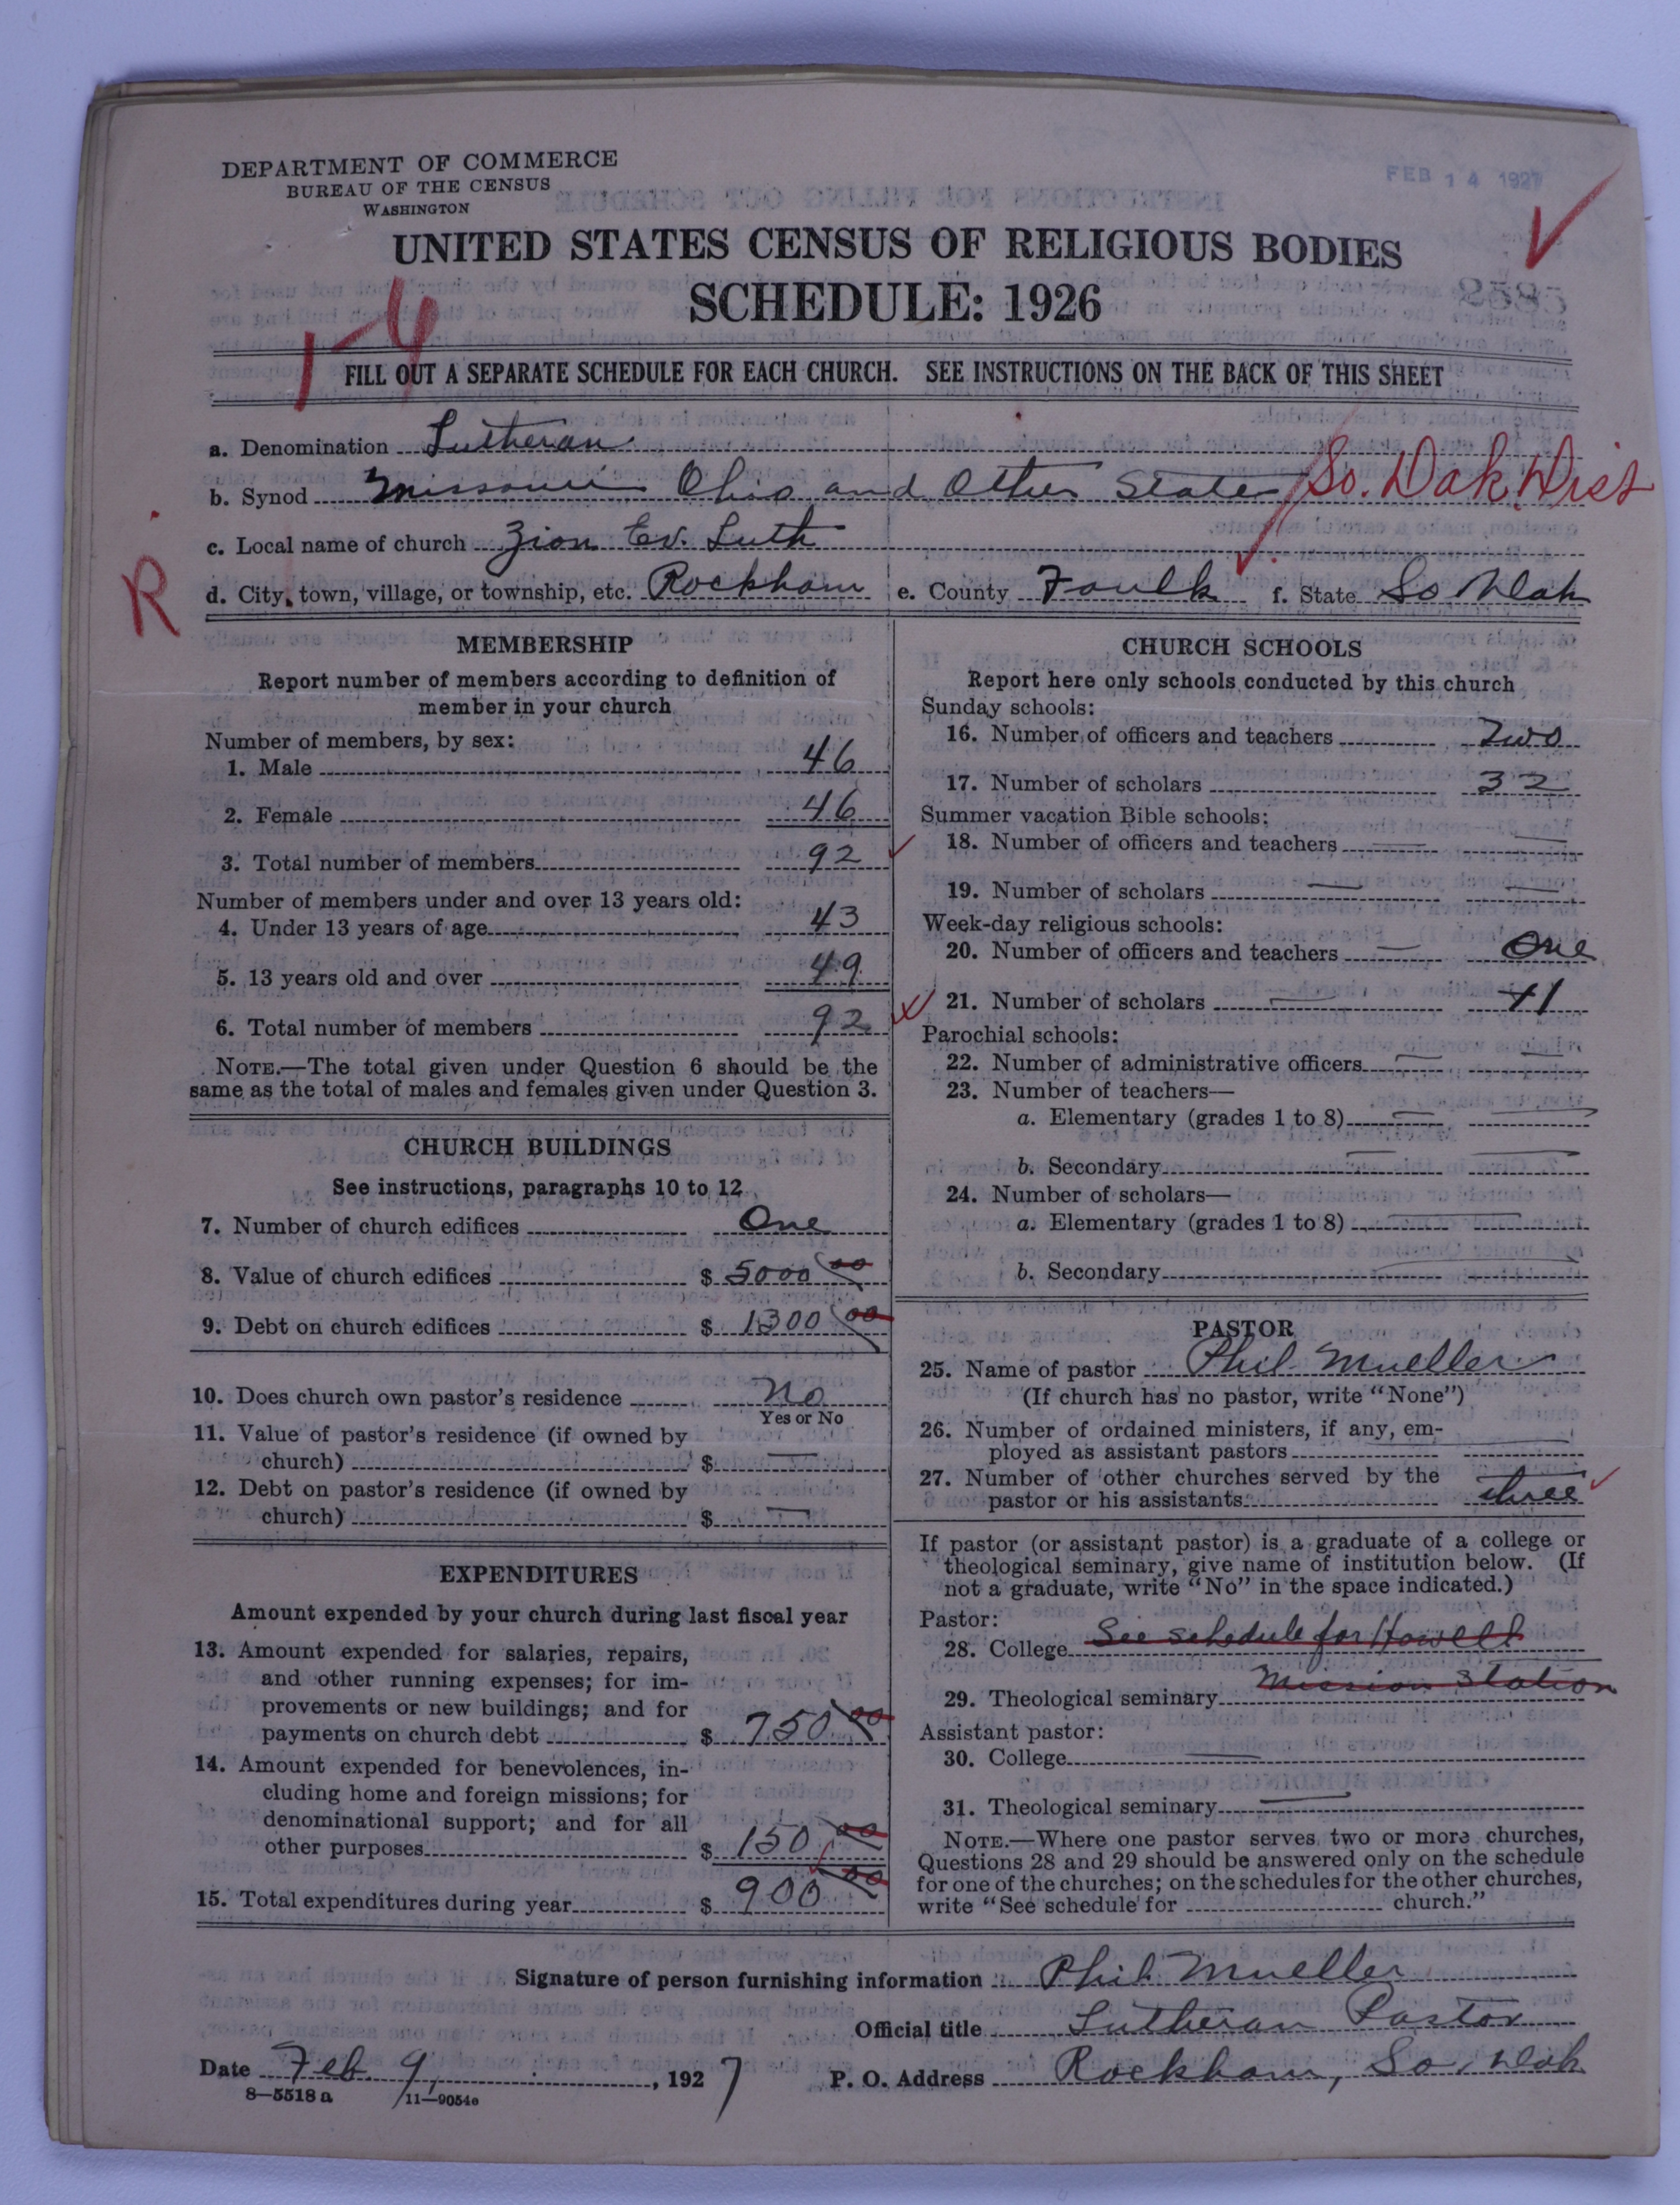 DEPARTMENT OF COMMERCE
BUREAU OF THE CENSUS
WASHINGTON
FEB 14 1927
UNITED STATES CENSUS OF RELIGIOUS BODIES
SCHEDULE: 1926
2585
1-4
FILL OUT A SEPARATE SCHEDULE FOR EACH CHURCH. SEE INSTRUCTIONS ON THE BACK OF THIS SHEET
a. Denomination Lutheran
b. Synod Missouri Ohio and Other States So. Dak Dist
c. Local name of church Zion Ev. Luth
R
d. City, town, village, or township, etc. Rockham e. County Faulk f. State So Dak
MEMBERSHIP
Report number of members according to definition of
member in your church
Number of members, by sex:
1. Male 46
2. Female 46
3. Total number of members 92
Number of members under and over 13 years old:
4. Under 13 years of age 43
5. 13 years old and over 49
6. Total number of members 92
NOTE.—The total given under Question 6 should be the
same as the total of males and females given under Question 3.
CHURCH BUILDINGS
See instructions, paragraphs 10 to 12
7. Number of church edifices One
8. Value of church edifices $ 5000 00
9. Debt on church edifices $ 1300 00
10. Does church own pastor's residence No
Yes or No
11. Value of pastor's residence (if owned by
church) $ —
12. Debt on pastor's residence (if owned by
church) $ —
EXPENDITURES
Amount expended by your church during last fiscal year
13. Amount expended for salaries, repairs,
and other running expenses; for im-
provements or new buildings; and for
payments on church debt $ 750 00
14. Amount expended for benevolences, in-
cluding home and foreign missions; for
denominational support; and for all
other purposes $ 150 00
15. Total expenditures during year $ 900 00
CHURCH SCHOOLS
Report here only schools conducted by this church
Sunday schools:
16. Number of officers and teachers Two
17. Number of scholars 32
Summer vacation Bible schools:
18. Number of officers and teachers —
19. Number of scholars —
Week-day religious schools:
20. Number of officers and teachers — One
21. Number of scholars — 11
Parochial schools:
22. Number of administrative officers —
23. Number of teachers—
a. Elementary (grades 1 to 8) —
b. Secondary —
24. Number of scholars—
a. Elementary (grades 1 to 8) —
b. Secondary —
PASTOR
25. Name of pastor Phil. Mueller
(If church has no pastor, write "None")
26. Number of ordained ministers, if any, em-
ployed as assistant pastors —
27. Number of other churches served by the
pastor or his assistants three
If pastor (or assistant pastor) is a graduate of a college or
theological seminary, give name of institution below. (If
not a graduate, write "No" in the space indicated.)
Pastor:
28. College See schedule for Howell
29. Theological seminary Mission Station
Assistant pastor:
30. College —
31. Theological seminary —
NOTE.—Where one pastor serves two or more churches,
Questions 28 and 29 should be answered only on the schedule
for one of the churches; on the schedules for the other churches,
write "See schedule for church."
Signature of person furnishing information Phil. Mueller
Official title Lutheran Pastor
Date Feb. 9, 1927 P. O. Address Rockham, So. Dak
8—5518 a 11—9054a